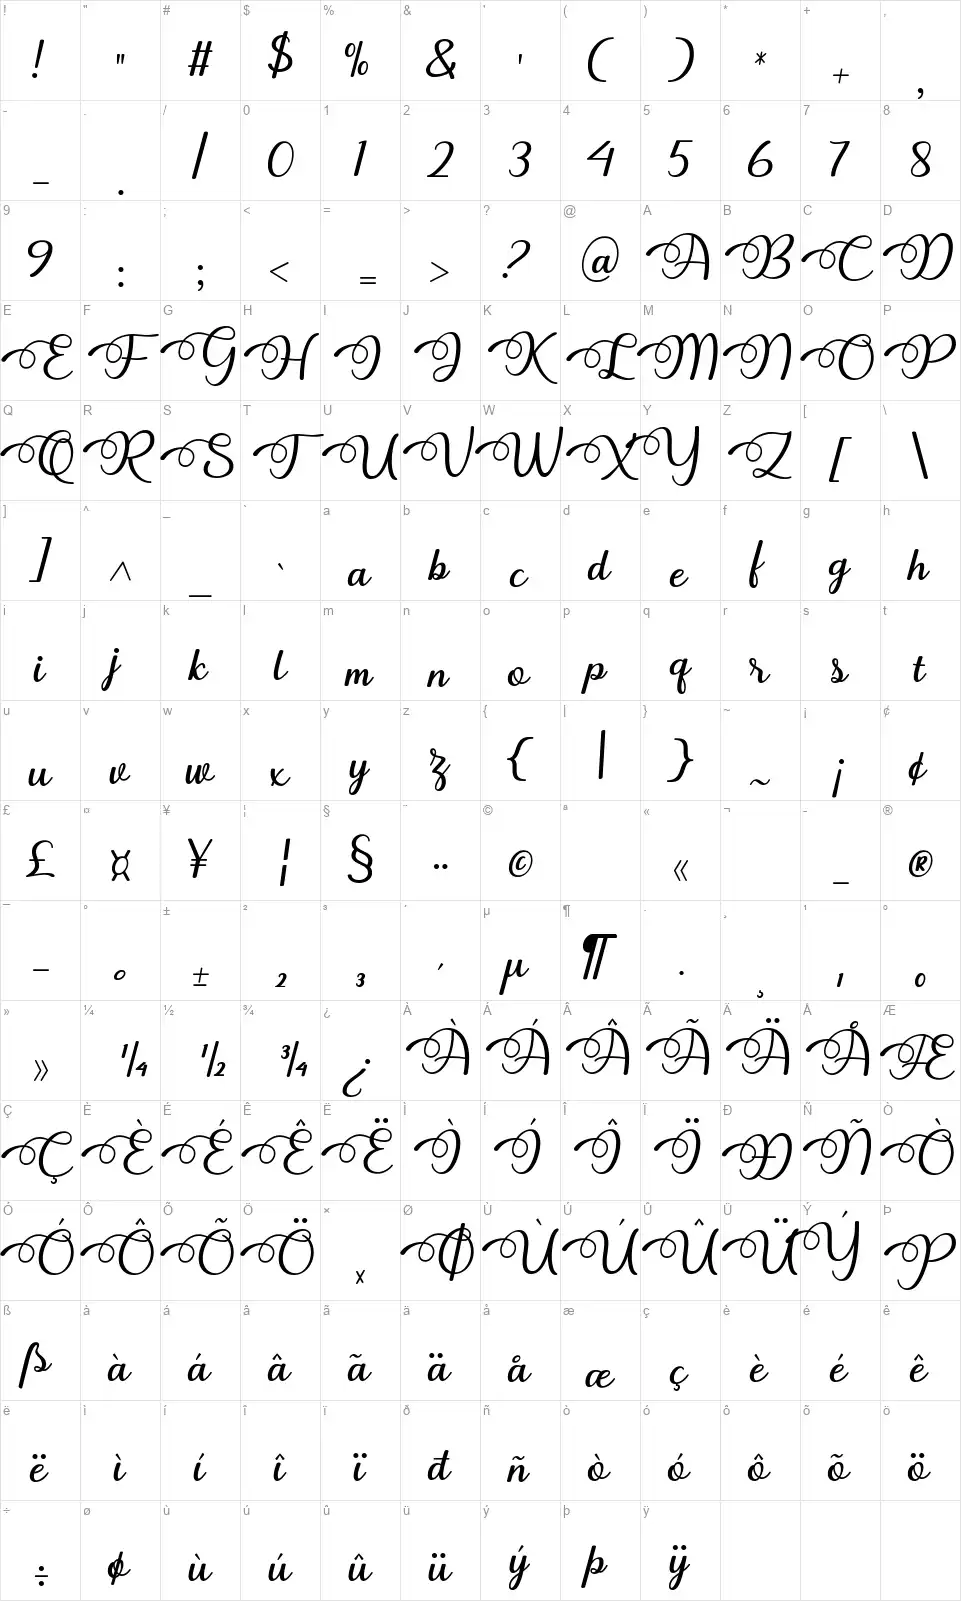 ! " # $ % & ' ( ) * + ,
! " # $ % & ' ( ) * + ,
- . / 0 1 2 3 4 5 6 7 8
- . / 0 1 2 3 4 5 6 7 8
9 : ; < = > ? @ A B C D
9 : ; < = > ? @ A B C D
E F G H I J K L M N O P
E F G H I J K L M N O P
Q R S T U V W X Y Z [ \
Q R S T U V W X Y Z [ \
] ^ _ ` a b c d e f g h
] ^ _ ` a b c d e f g h
i j k l m n o p q r s t
i j k l m n o p q r s t
u v w x y z { | } ~ ¡ ¢
u v w x y z { | } ~ ¡ ¢
£ ¤ ¥ ¦ § ¨ © ª « ¬ - ®
£ ¤ ¥ ¦ § ¨ © « - ®
¯ ° ± ² ³ ´ µ ¶ · ¸ ¹ º
¯ ° ± ² ³ ´ µ ¶ · ¸ ¹ º
» ¼ ½ ¾ ¿ À Á Â Ã Ä Å Æ
» ¼ ½ ¾ ¿ À Á Â Ã Ä Å Æ
Ç È É Ê Ë Ì Í Î Ï Ð Ñ Ò
Ç È É Ê Ë Ì Í Î Ï Ð Ñ Ò
Ó Ô Õ Ö × Ø Ù Ú Û Ü Ý Þ
Ó Ô Õ Ö × Ø Ù Ú Û Ü Ý Þ
ß à á â ã ä å æ ç è é ê
ß à á â ã ä å æ ç è é ê
ë ì í î ï ð ñ ò ó ô õ ö
ë ì í î ï ð ñ ò ó ô õ ö
÷ ø ù ú û ü ý þ ÿ
÷ ø ù ú û ü ý þ ÿ